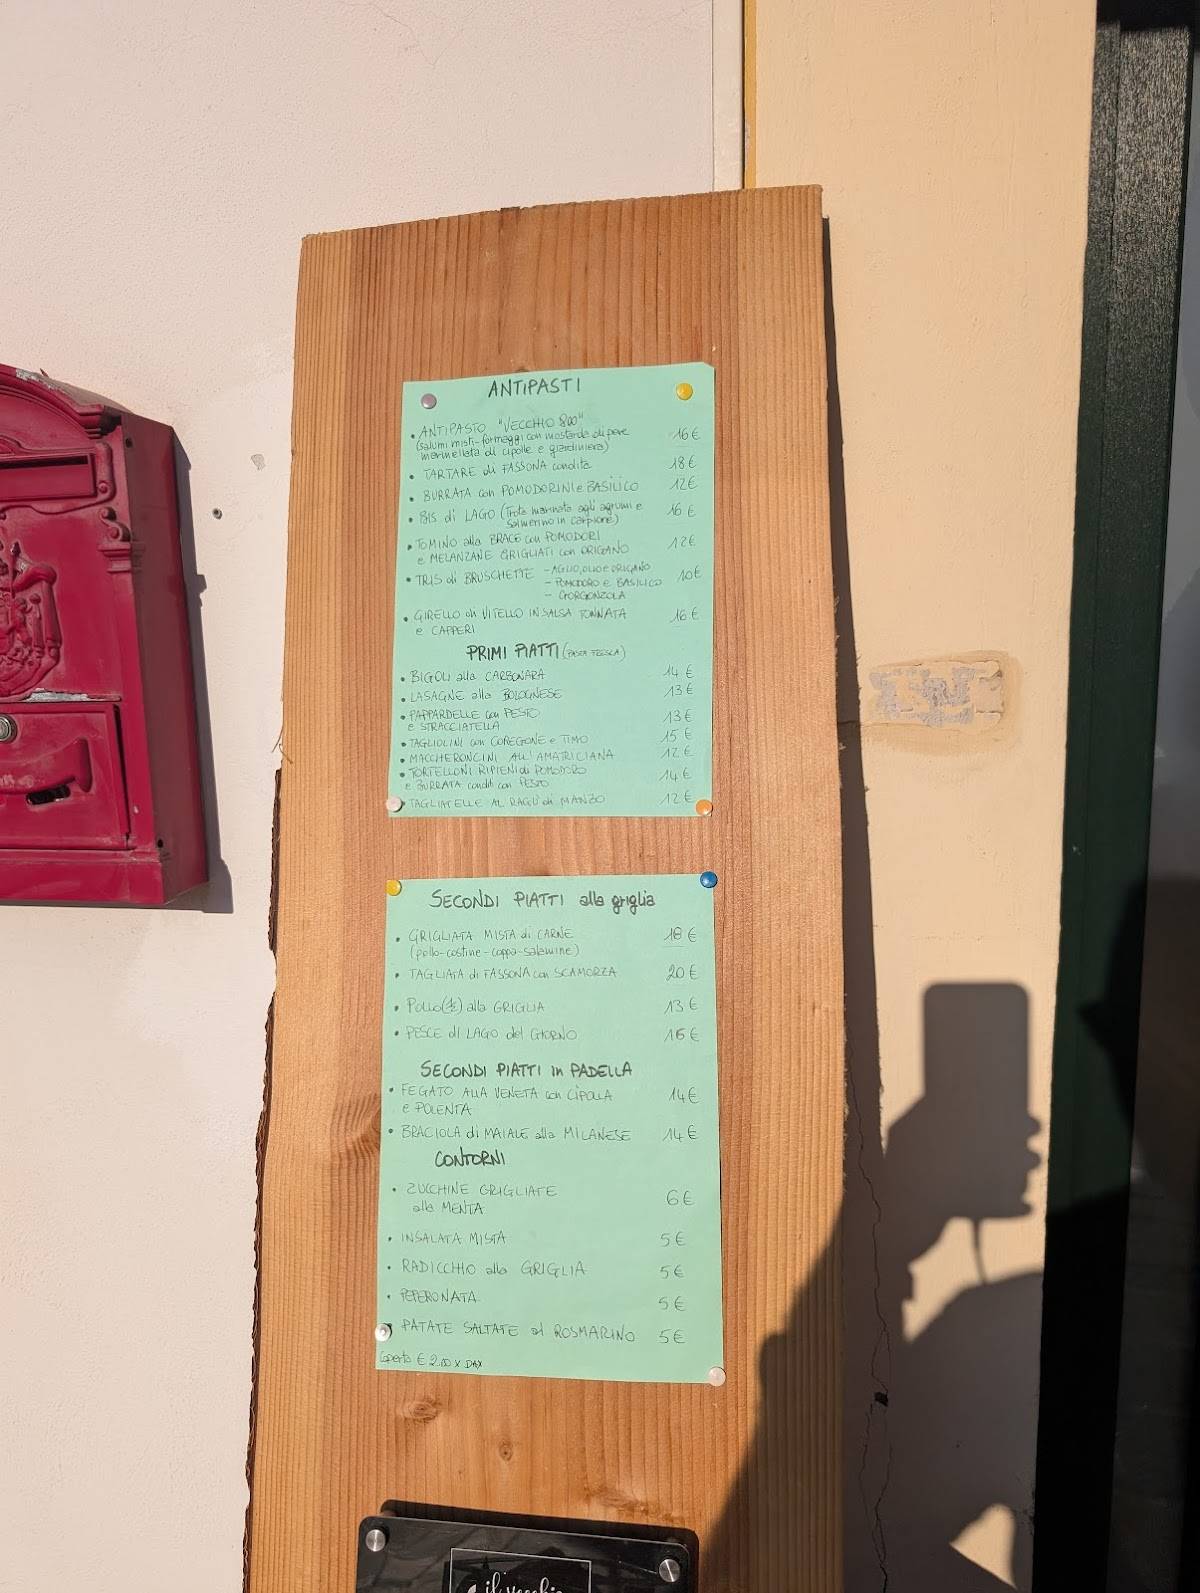 ANTIPASTI
• ANTIPASTO "VECCHIO 800"
(salumi misti-formaggi con mostarda di pere 16 €
marmellata di cipolle e giardiniera)
• TARTARE di FASSONA condita 18 €
• BURRATA con POMODORINI e BASILICO 12 €
• BIS di LAGO (Trota marinata agli agrumi e 16 €
salmerino in carpione)
• TOMINO alla BRACE con POMODORI 12 €
e MELANZANE GRIGLIATI con ORIGANO
• TRIS di BRUSCHETTE - AGLIO, OLIO e ORIGANO
- POMODORO e BASILICO 10 €
- GORGONZOLA
• GIRELLO di VITELLO IN SALSA TONNATA 16 €
e CAPPERI
PRIMI PIATTI (PASTA FRESCA)
• BIGOLI alla CARBONARA 14 €
• LASAGNE alla BOLOGNESE 13 €
• PAPPARDELLE con PESTO 13 €
e STRACCIATELLA
• TAGLIOLINI con COREGONE e TIMO 15 €
• MACCHERONCINI ALL'AMATRICIANA 12 €
• TORTELLONI RIPIENI di POMODORO 14 €
e BURRATA conditi con PESTO
• TAGLIATELLE AL RAGU' di MANZO 12 €
SECONDI PIATTI alla griglia
• GRIGLIATA MISTA di CARNE 18 €
(pollo-costine-coppa-salamine)
• TAGLIATA di FASSONA con SCAMORZA 20 €
• POLLO (½) alla GRIGLIA 13 €
• PESCE di LAGO del GIORNO 16 €
SECONDI PIATTI in PADELLA
• FEGATO ALLA VENETA con CIPOLLA 14 €
e POLENTA
• BRACIOLA di MAIALE alla MILANESE 14 €
CONTORNI
• ZUCCHINE GRIGLIATE 6 €
alla MENTA
• INSALATA MISTA 5 €
• RADICCHIO alla GRIGLIA 5 €
• PEPERONATA 5 €
• PATATE SALTATE al ROSMARINO 5 €
Coperto € 2.00 x PAX
il vecchio